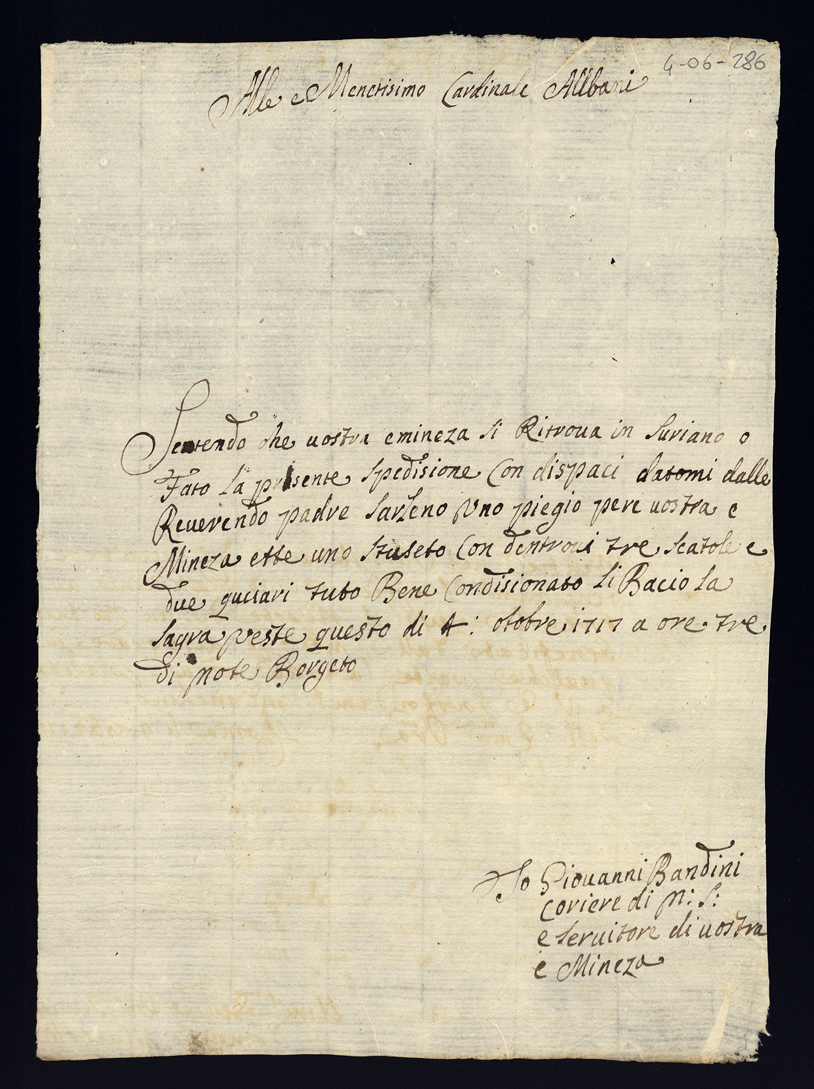 4-06-286
Alle e Menetisimo Cardinale Allbani
Sentendo che uostra emineza si Ritroua in suriano o
Fato la presente spedisione Con dispaci datomi dalle
Reuerendo padre sarleno vno piegio pere uostra e
Mineza ette uno stuseto Con dentroui tre scatole e
due quciari tuto Bene Condisionato li Bacio la
sagra veste questo di 4: otobre 1717 a ore tre
di note Borgeto
Io Giouanni Bandini
Coriere di N: S:
e seruitore di uostra
e Mineza